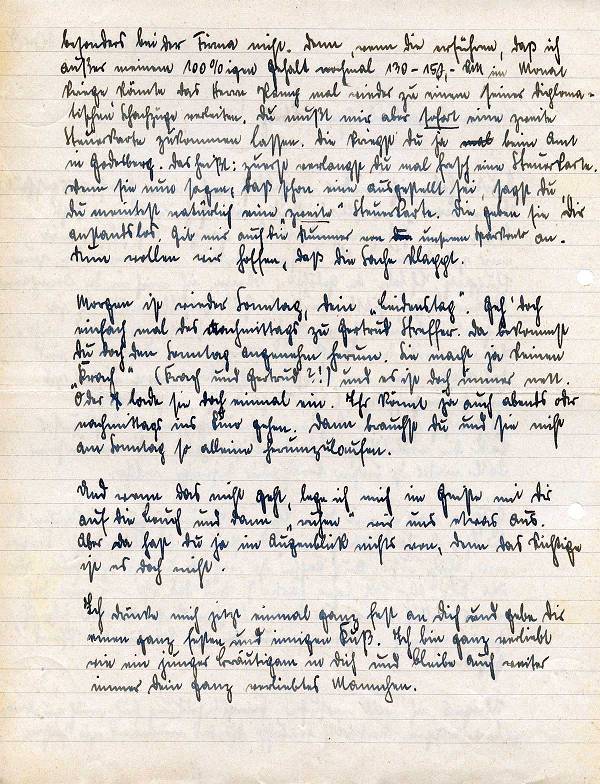 besonders bei der Firma nicht. Denn, wenn die erführen, daß ich
außer meinem 100%igen Gehalt nochmal 130-150,- RM im Monat
kriege könnte das Herrn mal wieder zu einem seiner diploma-
tischen Schachzüge verleiten. Du mußt mir aber sofort eine zweite
Steuerkarte zukommen lassen. Die kriegst Du ja beim Amt
in Godesberg. Das heißt: zuerst verlangst Du mal frech eine Steuerkarte.
Wenn sie nun sagen, daß schon eine ausgestellt sei, sagst Du,
Du meintest natürlich eine "zweite" Steuerkarte. Die geben sie Dir
anstandslos. Gib mir auch die Nummer von unserem Sparkonto an.
Dann wollen wir hoffen, daß die Sache klappt.
Morgen ist wieder Sonntag, Dein "Leidenstag". Geh' doch
einfach mal des Nachmittags zu Gertrud Streffer. Da bekommst
Du doch den Sonntag angenehm herum. Sie macht ja keinen
"Krach" (Krach und Gertrud?!) und es ist doch immer nett.
Oder lade sie doch einmal ein. Ihr könnt ja auch abends oder
nachmittags ins Kino gehen. Dann brauchst Du und sie nicht
am Sonntag so alleine herumzulaufen.
Und wenn das nicht geht, lege ich mich im Geiste mit Dir
auf die Couch und dann "ruhen" wir uns etwas aus.
Aber da hast Du ja im Augenblick nichts von, denn das Richtige
ist es doch nicht.
Ich drücke mich jetzt einmal ganz fest an Dich und gebe Dir
einen ganz festen und innigen Kuß. Ich bin ganz verliebt
wie ein junger Bräutigam in Dich und bleibe auch weiter
immer Dein ganz verliebtes Männchen.